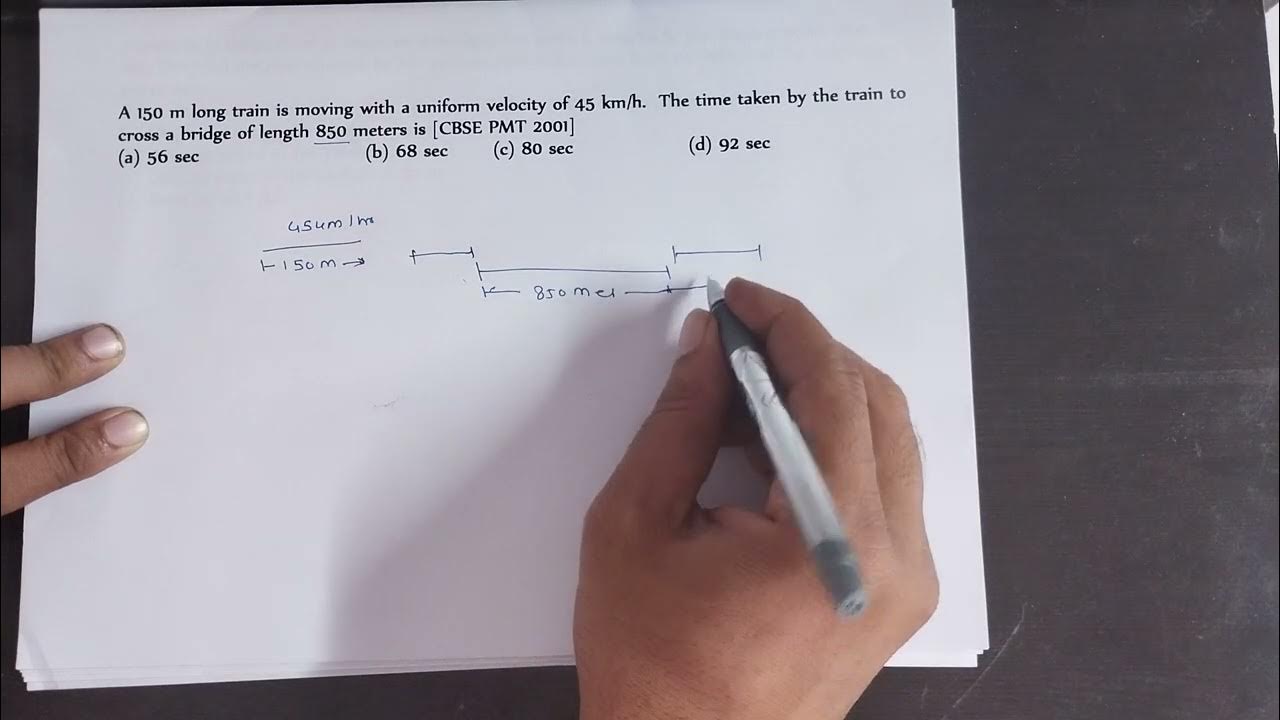 A 150 m long train is moving with a uniform velocity of 45 km/h. The time taken by the train to
cross a bridge of length 850 meters is [CBSE PMT 2001]
(a) 56 sec (b) 68 sec (c) 80 sec (d) 92 sec
45km/hr
150m
850met